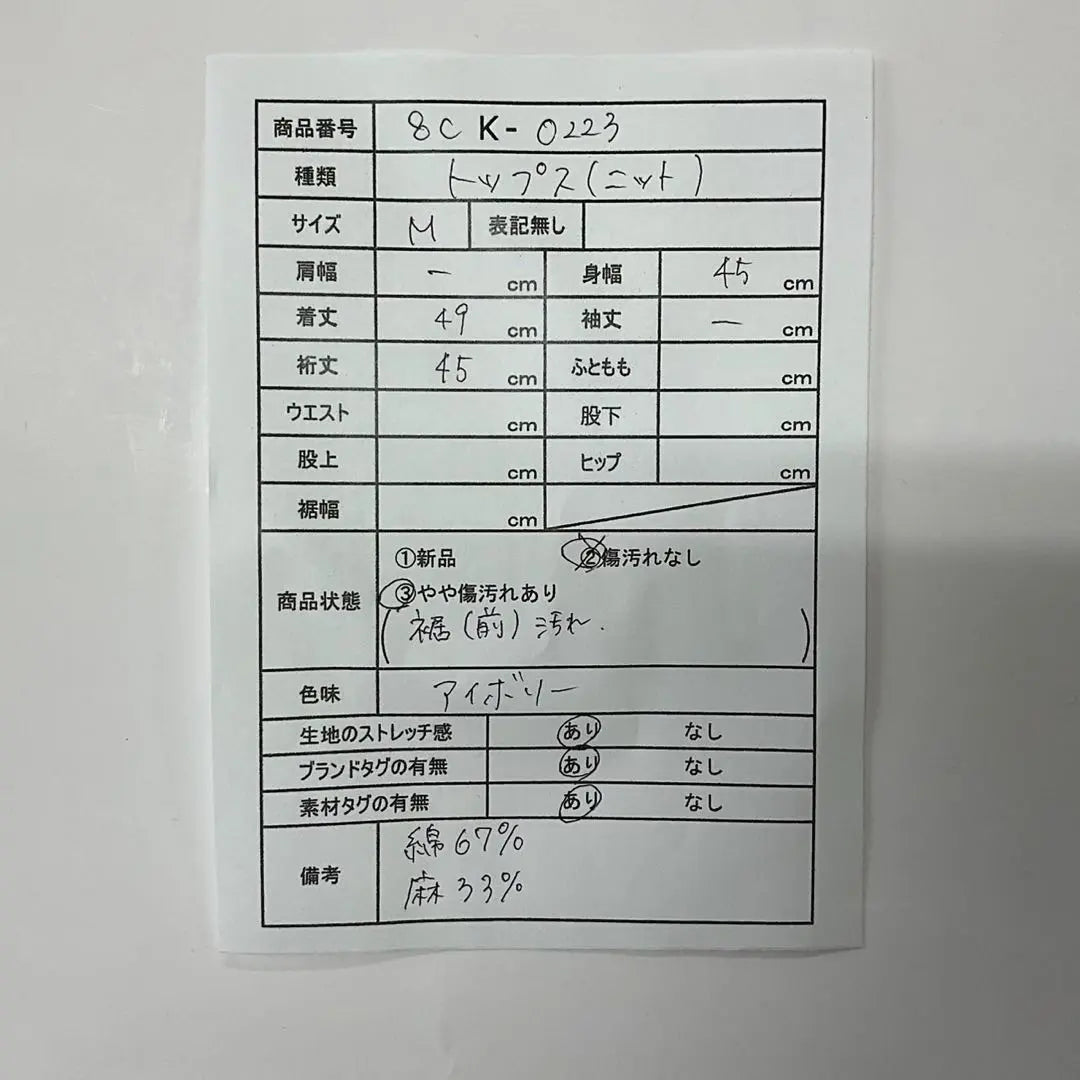 商品番号 8C K- 0223
種類 トップス(ニット)
サイズ M 表記無し
肩幅 ー cm 身幅 45 cm
着丈 49 cm 袖丈 ー cm
裄丈 45 cm ふともも cm
ウエスト cm 股下 cm
股上 cm ヒップ cm
裾幅 cm
商品状態 ①新品 ②傷汚れなし
③やや傷汚れあり
(裾(前)汚れ.)
色味 アイボリー
生地のストレッチ感 あり なし
ブランドタグの有無 あり なし
素材タグの有無 あり なし
備考 綿67%
麻33%